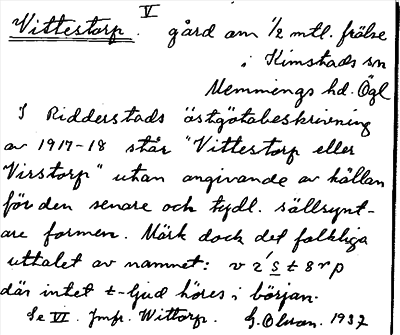 V
Vittestorp. gård om 1/2 mtl. frälse
i Kimstads sn
Memmings hd. Ögl
I Ridderstads östgötabeskrivning
av 1917-18 står "Vittestorp eller
Virstorp" utan angivande av källan
för den senare och tydl. sällsynt-
are formen. Märk dock det folkliga
uttalet av namnet: v 2 ́s t 8 r p
där intet t-ljud höres i början.
Se VI. Jmf. Wittorp. G. Olson. 1937